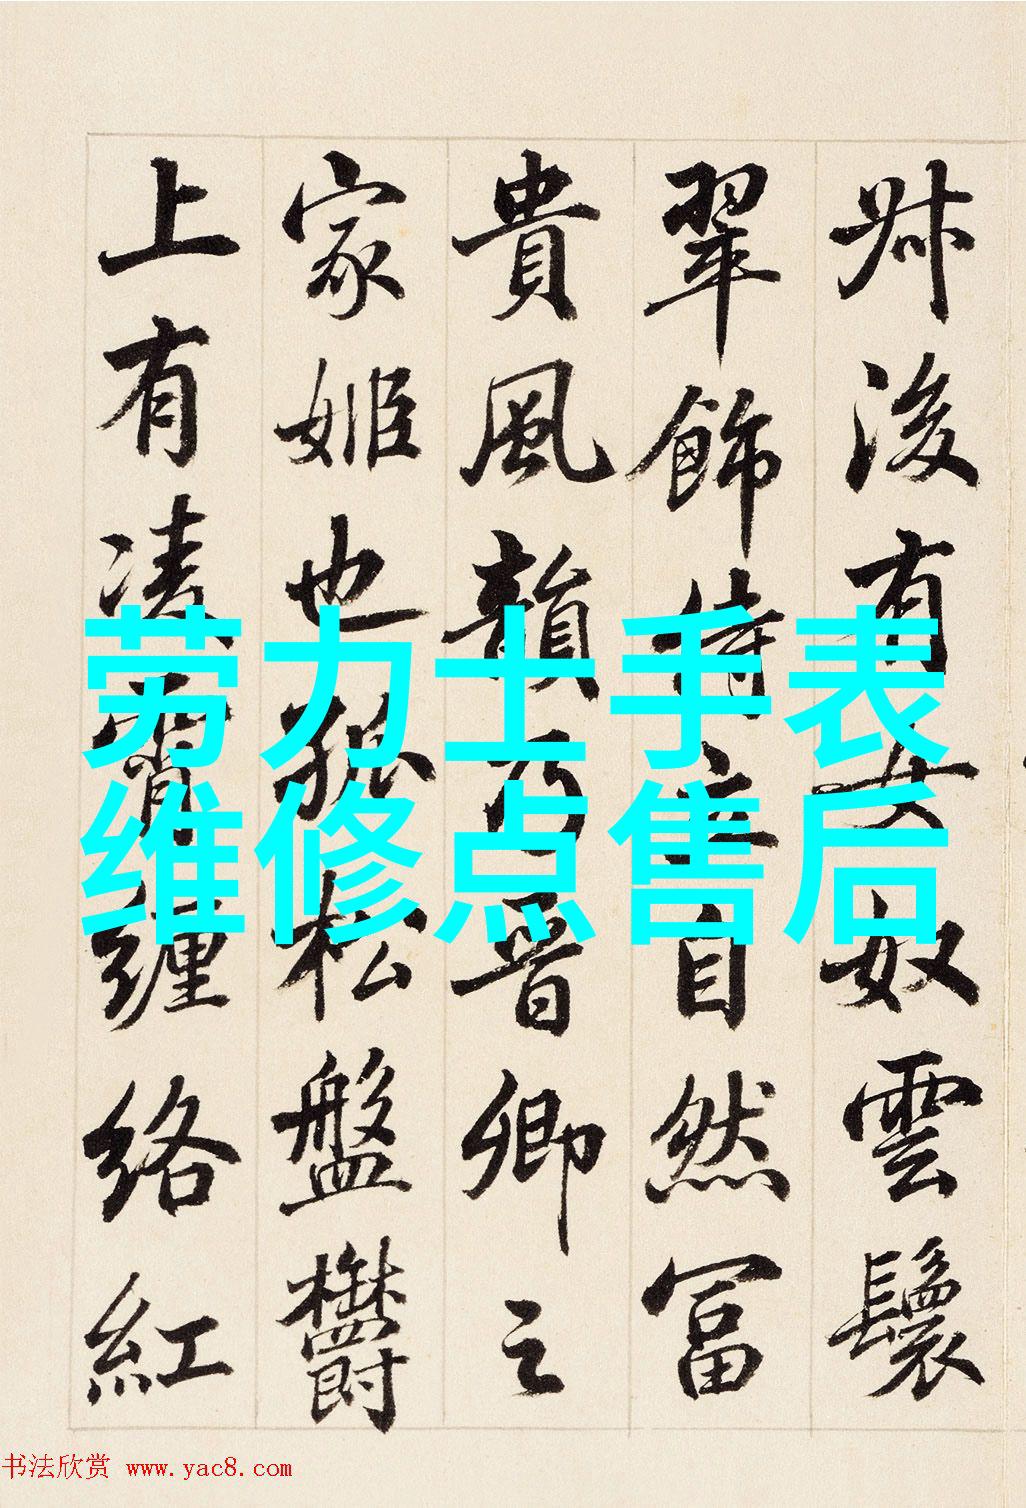 叔後有女奴雲鬟
翠飾侍立自然富
貴風韻乃晉卿之
家姬也孤松盤鬱
上有凌霄纏絡紅
劳力士手表
维修点售后
书法欣赏 www.yac8.com